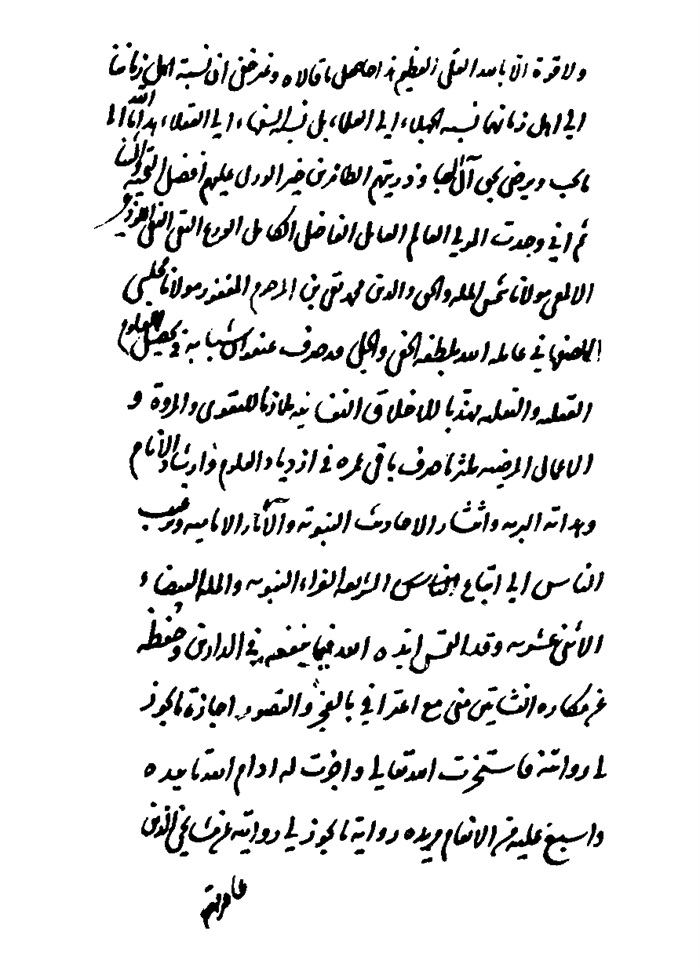 ولا قوة الا بالله العلي العظيم هذا حاصل ما قالاه وغير خفي ان نسبة اهل زماننا
الى اهل زمانهما نسبة الجهلاء الى العلماء بل نسبة السفهاء الى العقلاء هدانا الله الى
ما يحب ويرضى بحق آل العبا وذريتهم الطاهرين خير الورى عليهم أفضل التحية والثنا
ثم اني وجدت المولى العالم العامل الفاضل الكامل الورع التقي النقي
الالمعي مولانا شمس الملة والحق والدين محمد تقي بن المرحوم المغفور مولانا مجلسي
الاصفهاني عامله الله بلطفه الخفي والجلي قد صرف عنفوان شبابه في تحصيل العلوم
العقلية والنقلية مهتديا للاخلاق النفسانية ملازما للتقوى والمروة و
الاعمال المرضية ملتزما صرف باقي عمره في ازدياد العلوم وارشاد الأنام
وهداية البرية وانتشار الاحاديث النبوية والآثار الامامية وترغيب
الناس الى اتباع الناس الشريعة الغراء النبوية والملة البيضاء
الاثني عشرية وقد التمس ايده الله فيما ينفعه في الدارين وحفظه
عن مكاره النشأتين مني مع اعترافي بالعجز والقصور اجازة ما يجوز
لي روايته فاستخرت الله تعالى واجزت له ادام الله تأييده
واسبغ عليه من الانعام مزيده رواية ما يجوز لي روايته عن مشايخي الذين
عاصرتهم